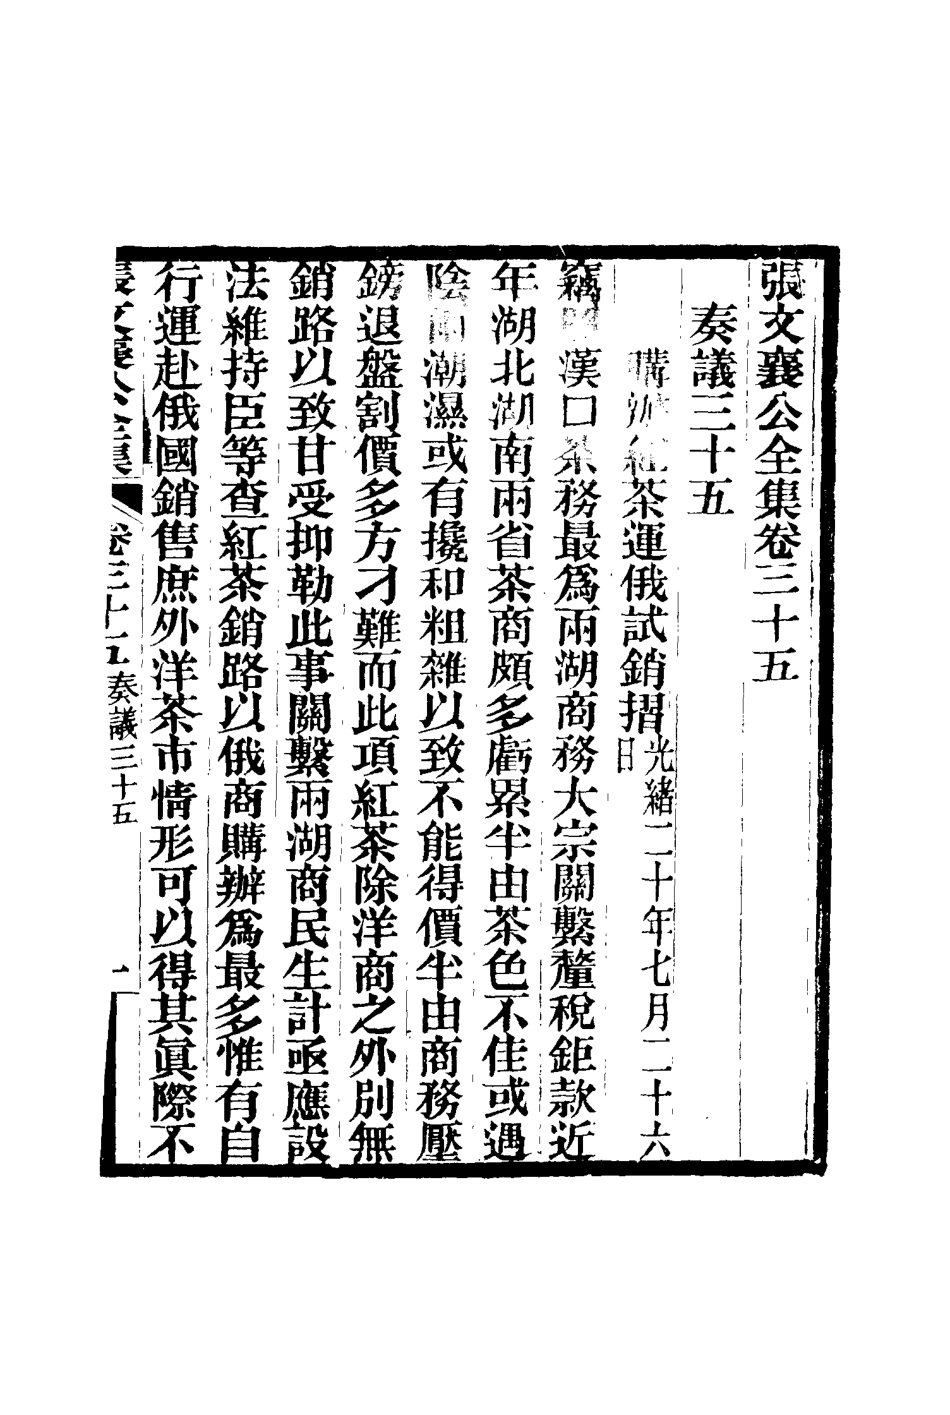 張文襄公全集卷三十五
奏議三十五
購辦紅茶運俄試銷摺光緒二十年七月二十六日
竊 漢口茶務最爲兩湖商務大宗關繫釐稅鉅款近
年湖北湖南兩省茶商頗多虧累半由茶色不佳或遇
陰雨潮濕或有攙和粗雜以致不能得價半由商務壓
鎊退盤割價多方刁難而此項紅茶除洋商之外別無
銷路以致甘受抑勒此事關繫兩湖商民生計亟應設
法維持臣等查紅茶銷路以俄商購辦爲最多惟有自
行運赴俄國銷售庶外洋茶市情形可以得其眞際不
張文襄公全集 卷三十五 奏議三十五 一